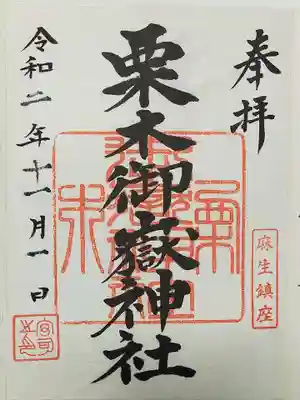 奉拝
麻生鎮座
栗木御嶽神社
令和二年十一月一日